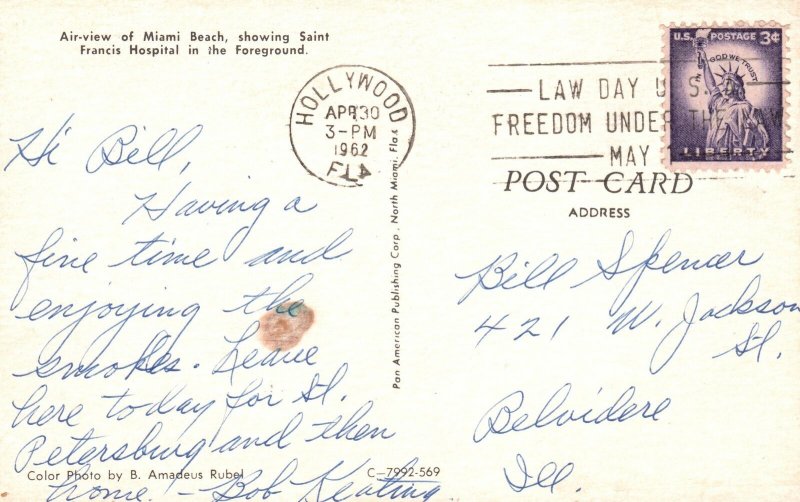 Air-view of Miami Beach, showing Saint
Francis Hospital in the Foreground.
Hi Bill,
Having a
fine time and
enjoying the
smokes. Leave
here today for St.
Petersburg and then
home. - Bob Keating
Color Photo by B. Amadeus Rubel
C-7992-569
Pan American Publishing Corp., North Miami, Fla.
HOLLYWOOD
APR 30
3-PM
1962
FLA
LAW DAY U.S.
FREEDOM UNDER THE LAW
MAY
U.S. POSTAGE 3¢
IN GOD WE TRUST
LIBERTY
POST CARD
ADDRESS
Bill Spencer
421 W. Jackson
St.
Belvidere
Ill.